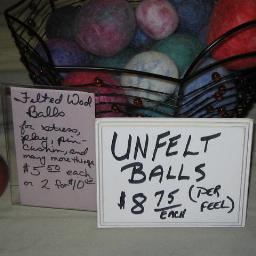 Felted Wool
Balls
for stress,
play, pin-
cushion, and
many more things
$5 50 each
or 2 for $10 00
UNFELT
BALLS
$8 75 EACH (PER FEEL)